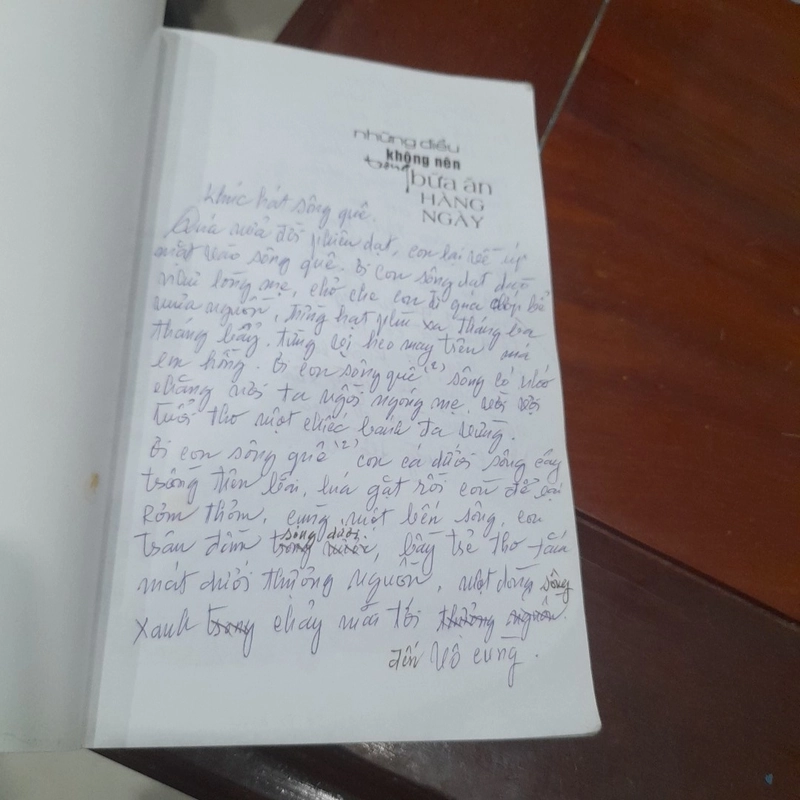 những điều
không nên
trong bữa ăn
HÀNG
NGÀY
Khúc hát sông quê.
Quá nửa đời phiêu dạt, con lại về úp
mặt vào sông quê. Ơi con sông dạt dào
như lòng mẹ, chở che con đi qua chớp bể
mưa nguồn, từng hạt phù sa tháng ba
tháng bảy, từng vị heo may trên má
em hồng. Ơi con sông quê (2) sông có nhớ
chăng nơi ta ngồi ngóng mẹ, vời vợi
tuổi thơ một chiếc bánh đa vừng.
Ơi con sông quê (2) con cá dưới sông cây
trồng trên bãi, lúa gặt rồi còn để lại
Rơm thơm, cùng một bến sông, con
trâu đằm sông dưới, bầy trẻ thơ tắm
mát dưới thượng nguồn, một dòng sông
xanh chảy mãi tới
đến vô cùng.